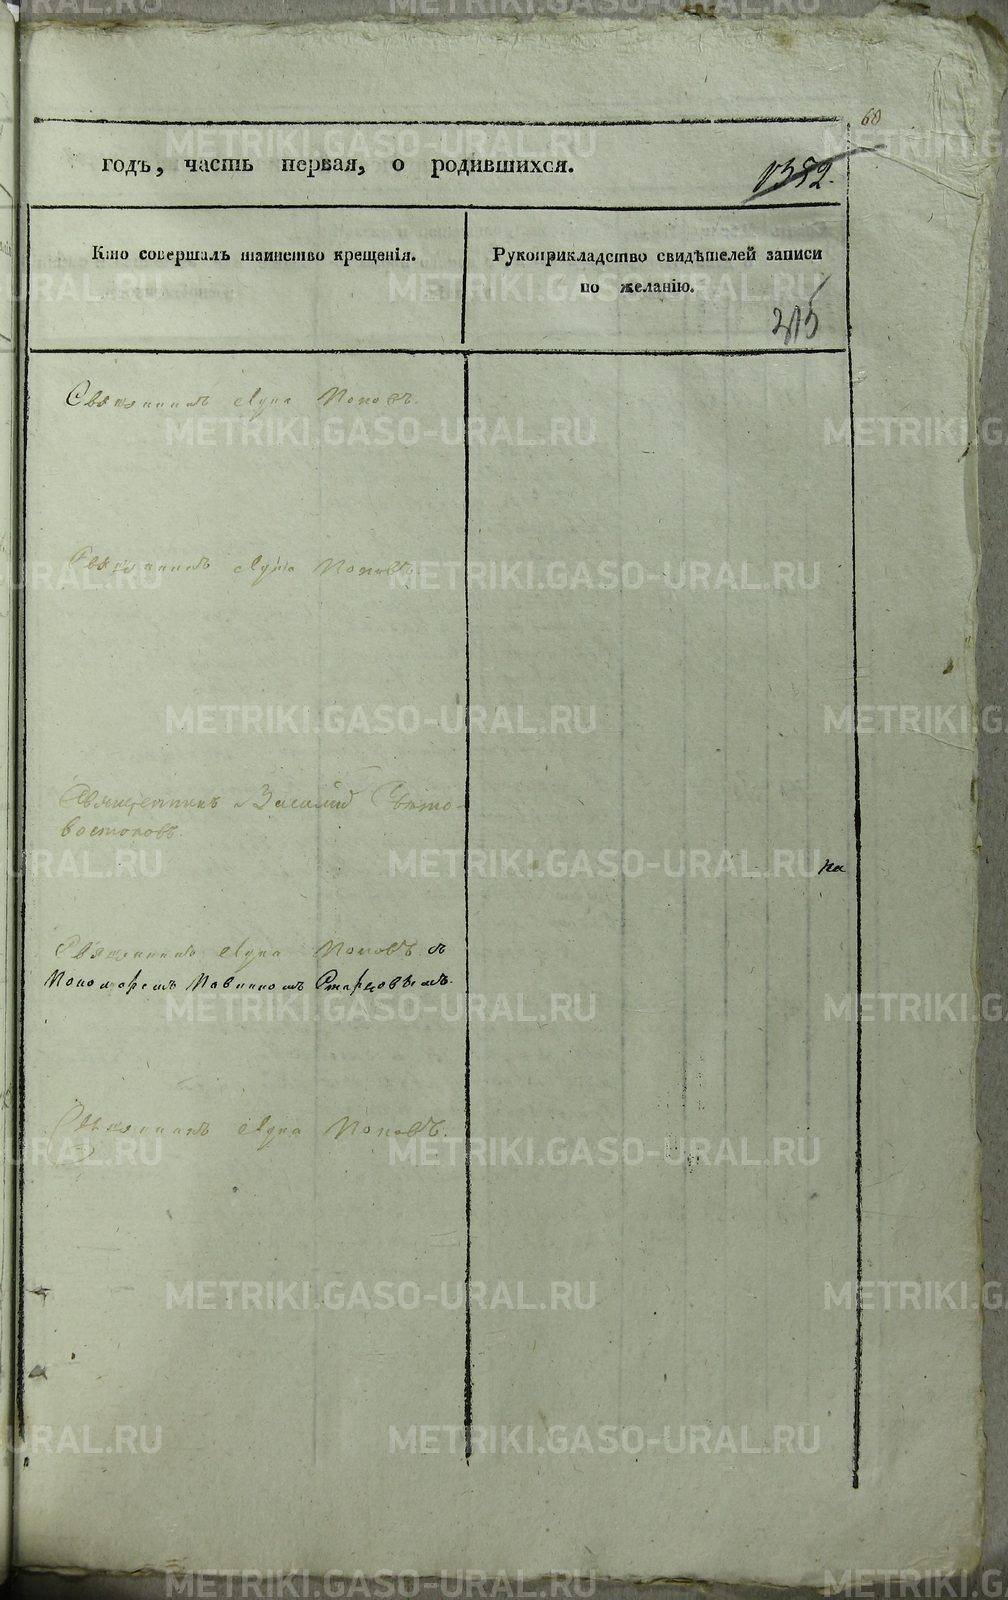 60
годъ, часть первая, о родившихся.
1352.
Кто совершалъ таинство крещенія.
Рукоприкладство свидѣтелей записи
по желанію.
Священникъ Лука Поповъ.
Священникъ Лука Поповъ.
Священникъ Василій Свѣто-
востоковъ.
на
Священникъ Лука Поповъ съ
Пономаремъ Старцовымъ.
Священникъ Лука Поповъ.
METRIKI.GASO-URAL.RU